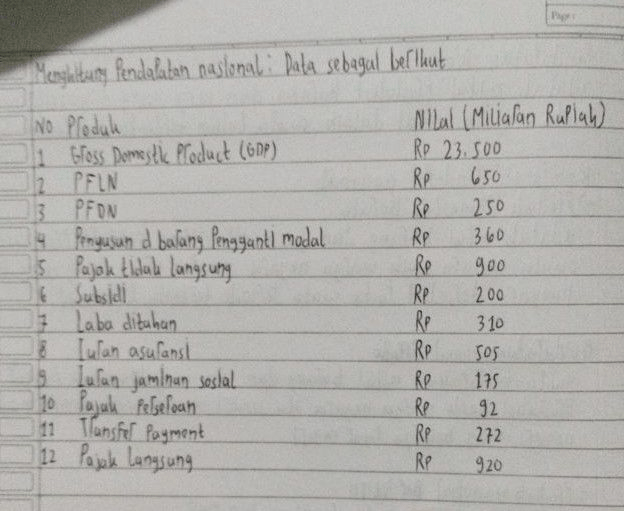 Page:
Menghitung Pendapatan nasional: Data sebagai berikut
No Produk Nilai (Miliaran Rupiah)
1 Gross Domestic Product (GDP) Rp 23.500
2 PFLN Rp 650
3 PFDN Rp 250
4 Penyusun d barang Pengganti modal Rp 360
5 Pajak tidak langsung Rp 900
6 Subsidi Rp 200
7 Laba ditahan Rp 310
8 Iuran asuransi Rp 505
9 Iuran jaminan sosial Rp 175
10 Pajak Perseroan Rp 92
11 Transfer Payment Rp 272
12 Pajak Langsung Rp 920